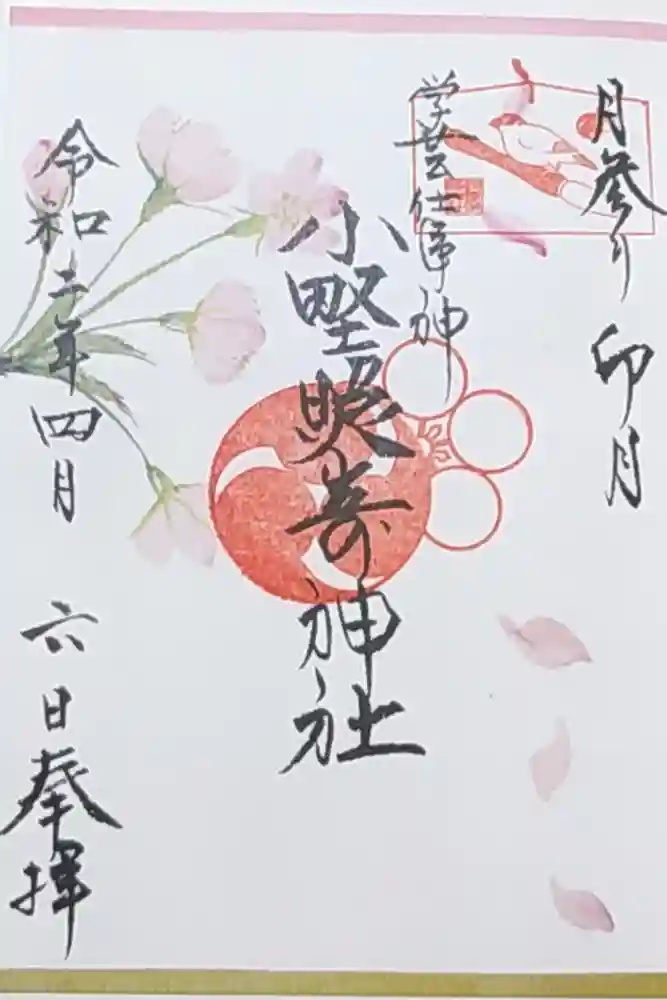 月参り 卯月
学芸仕事神
小野照嵜神社
令和二年四月 六日奉拝